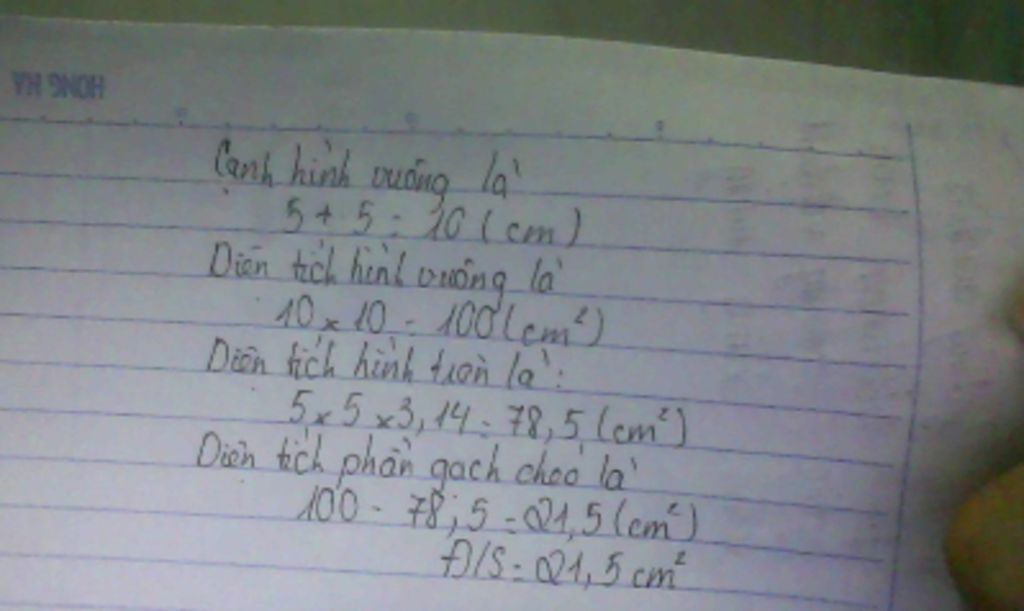 HONG HA
Cạnh hình vuông là
5 + 5 = 10 (cm)
Diện tích hình vuông là
10 x 10 = 100 (cm²)
Diện tích hình tròn là:
5 x 5 x 3,14 = 78,5 (cm²)
Diện tích phần gạch chéo là
100 - 78,5 = 21,5 (cm²)
Đ/S = 21,5 cm²